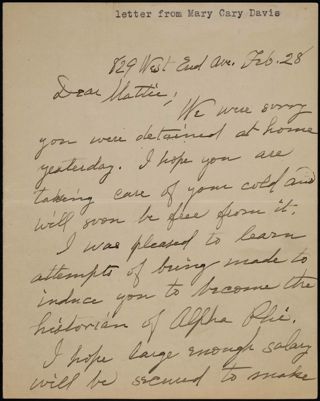 letter from Mary Cary Davis
829 West End Ave. Feb. 28
Dear Mattie;
We were sorry
you were detained at home
yesterday. I hope you are
taking care of your cold and
will soon be free from it.
I was pleased to learn
attempts of being made to
induce you to become the
historian of Alpha Phi.
I hope large enough salary
will be secured to make